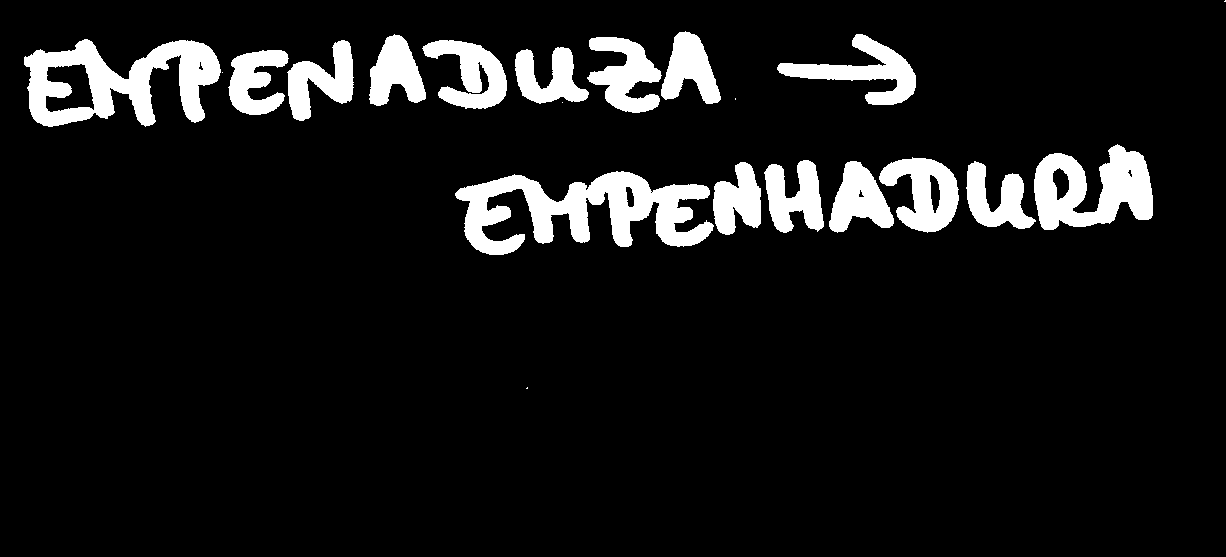 EMPENADUZA →
EMPENHADURA